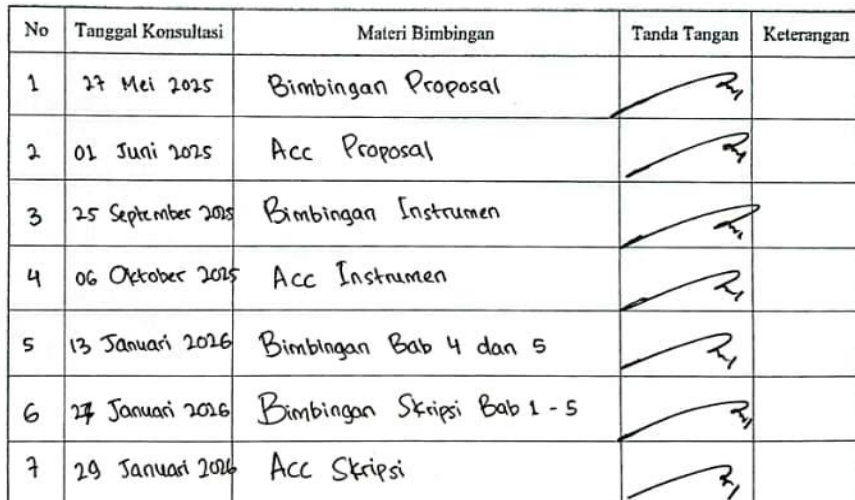 No Tanggal Konsultasi Materi Bimbingan Tanda Tangan Keterangan
1 27 Mei 2025 Bimbingan Proposal
2 01 Juni 2025 Acc Proposal
3 25 September 2025 Bimbingan Instrumen
4 06 Oktober 2025 Acc Instrumen
5 13 Januari 2026 Bimbingan Bab 4 dan 5
6 27 Januari 2026 Bimbingan Skripsi Bab 1 - 5
7 29 Januari 2026 Acc Skripsi